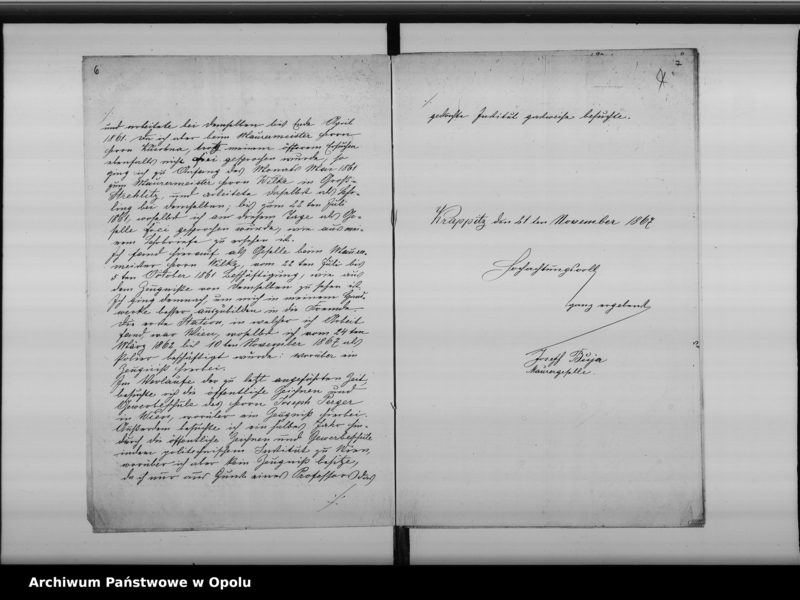 6
und arbeitete bei demselben bis Ende April
1861. Da ich aber beim Maurermeister Herrn
Herrn trotz meinem öfteren Ersuchen
ebenfalls nicht frei gesprochen wurde, so
ging ich zu Anfang des Monats Mai 1861
zum Maurermeister Herrn Wilke in Groß-
Strehlitz, und arbeitete daselbst als Lehr-
ling bei demselben; bis zum 22ten Juli
1861, woselbst ich an diesem Tage als Ge-
selle frei gesprochen wurde, wie aus mei-
nem Lehrbriefe zu ersehen ist.
Ich fand hierauf als Geselle beim Maurer-
meister Herrn Wilke, vom 22ten Juli bis
5ten October 1861 Beschäftigung, wie aus
dem Zeugniße von demselben zu sehen ist.
Ich ging demnach, um mich in meinem Hand-
werke besser auszubilden in die Fremde.
Die erste Station, in welcher ich Arbeit
fand, war Wien, woselbst ich vom 24ten
März 1862 bis 10ten November 1867 als
Polier beschäftigt wurde: worüber ein
Zeugniß hierbei.
Im Verlaufe der zu letzt angeführten Zeit
besuchte ich die öffentliche Zeichnen und
Gewerbeschule des Herrn Joseph Perger
in Wien, worüber ein Zeugniß hierbei.
Außerdem besuchte ich ein halbes Jahr hin-
durch die öffentliche Zeichnen und Gewerbeschule
im politechnischen Institut zu Wien,
worüber ich aber kein Zeugniß besitze,
da ich nur aus Gunst eines Professors das
./.
7
./.
gedachte Institut besuchte.
Krappitz den 21ten November 1867
Hochachtungsvoll
ganz ergebenst
Joseff Buja
Maurergeselle.
Archiwum Państwowe w Opolu